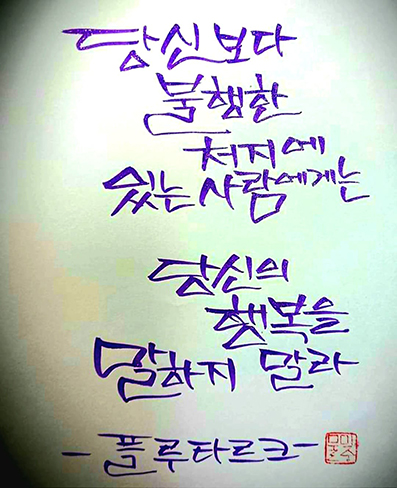 당신보다
불행한
처지에
있는 사람에게는
당신의
행복을
말하지 말라
-플루타르크-